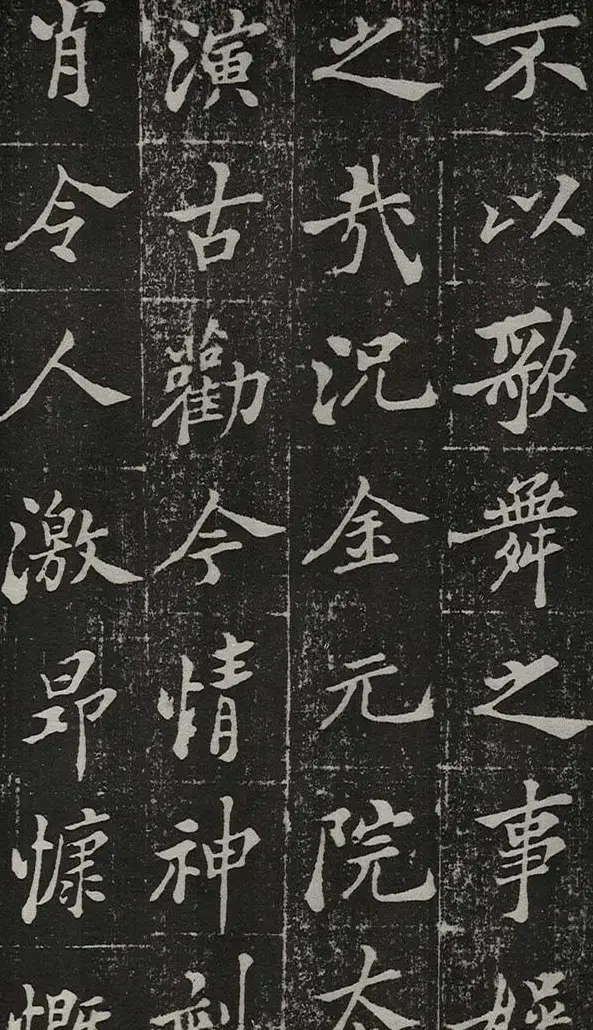 不以歌舞之事
之哉况金元院本
演古勸今情神刻
肖令人激昂慷慨